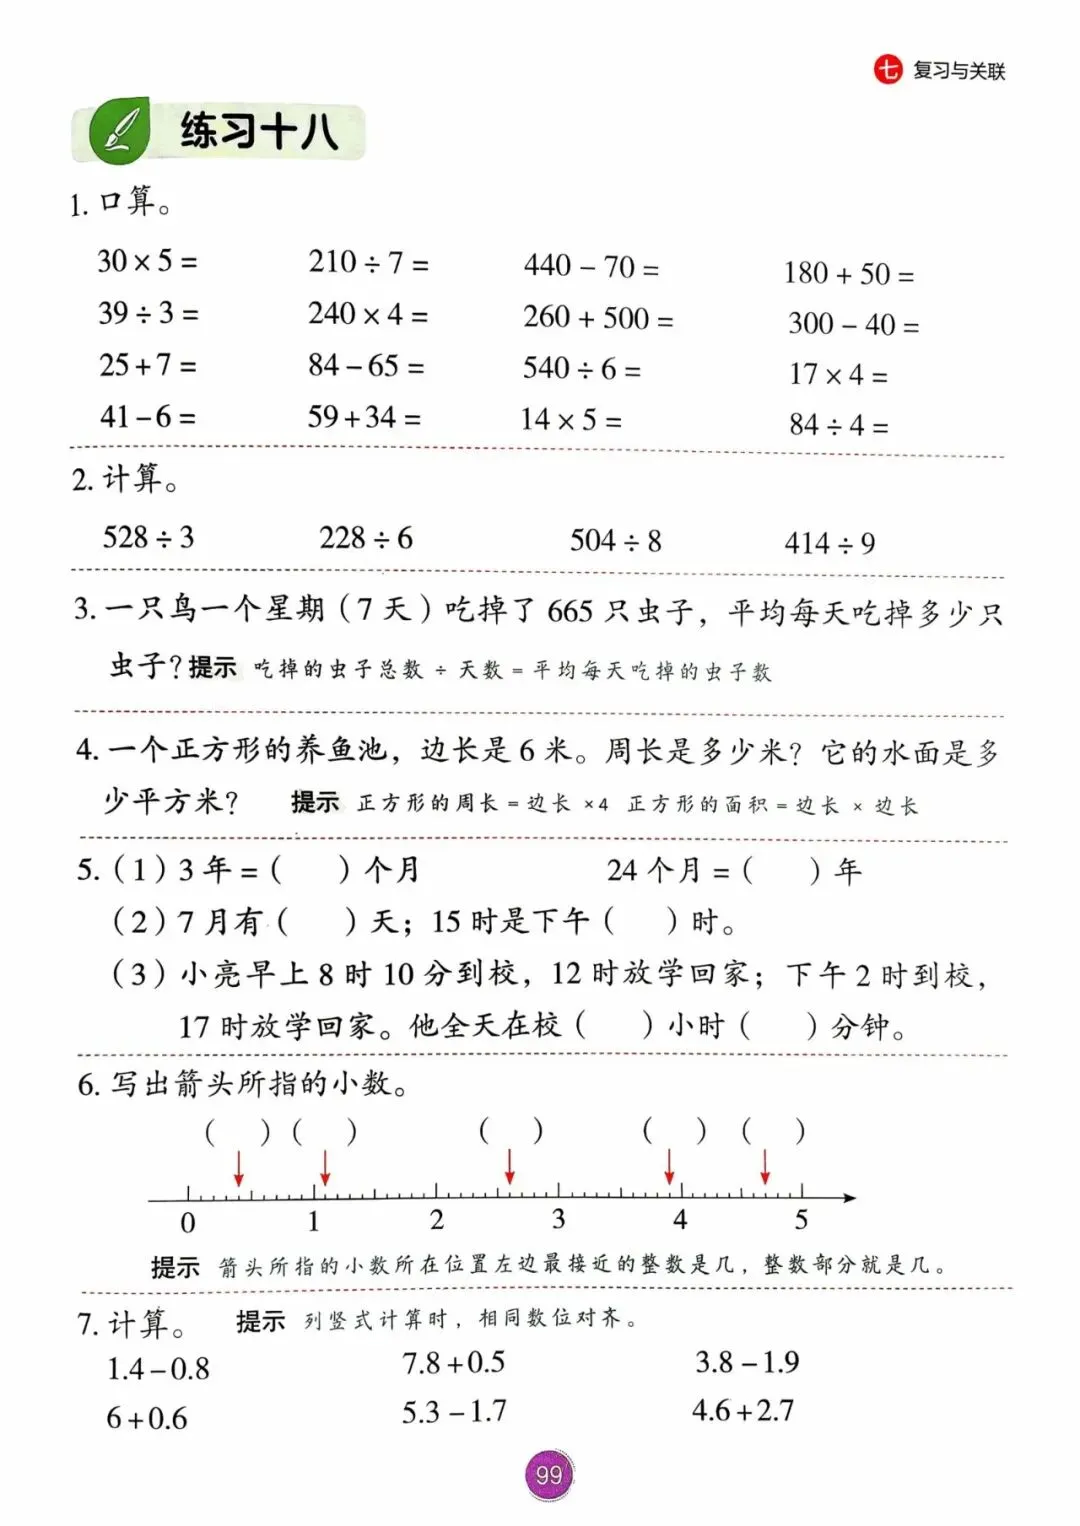 七 复习与关联
练习十八
1. 口算。
30×5= 210÷7= 440-70= 180+50=
39÷3= 240×4= 260+500= 300-40=
25+7= 84-65= 540÷6= 17×4=
41-6= 59+34= 14×5= 84÷4=
2. 计算。
528÷3 228÷6 504÷8 414÷9
3. 一只鸟一个星期（7天）吃掉了665只虫子，平均每天吃掉多少只
虫子？提示 吃掉的虫子总数÷天数=平均每天吃掉的虫子数
4. 一个正方形的养鱼池，边长是6米。周长是多少米？它的水面是多
少平方米？ 提示 正方形的周长=边长×4 正方形的面积=边长×边长
5.（1）3年=（ ）个月 24个月=（ ）年
（2）7月有（ ）天；15时是下午（ ）时。
（3）小亮早上8时10分到校，12时放学回家；下午2时到校，
17时放学回家。他全天在校（ ）小时（ ）分钟。
6. 写出箭头所指的小数。
（ ）（ ） （ ） （ ）（ ）
0 1 2 3 4 5
提示 箭头所指的小数所在位置左边最接近的整数是几，整数部分就是几。
7. 计算。 提示 列竖式计算时，相同数位对齐。
1.4-0.8 7.8+0.5 3.8-1.9
6+0.6 5.3-1.7 4.6+2.7
99